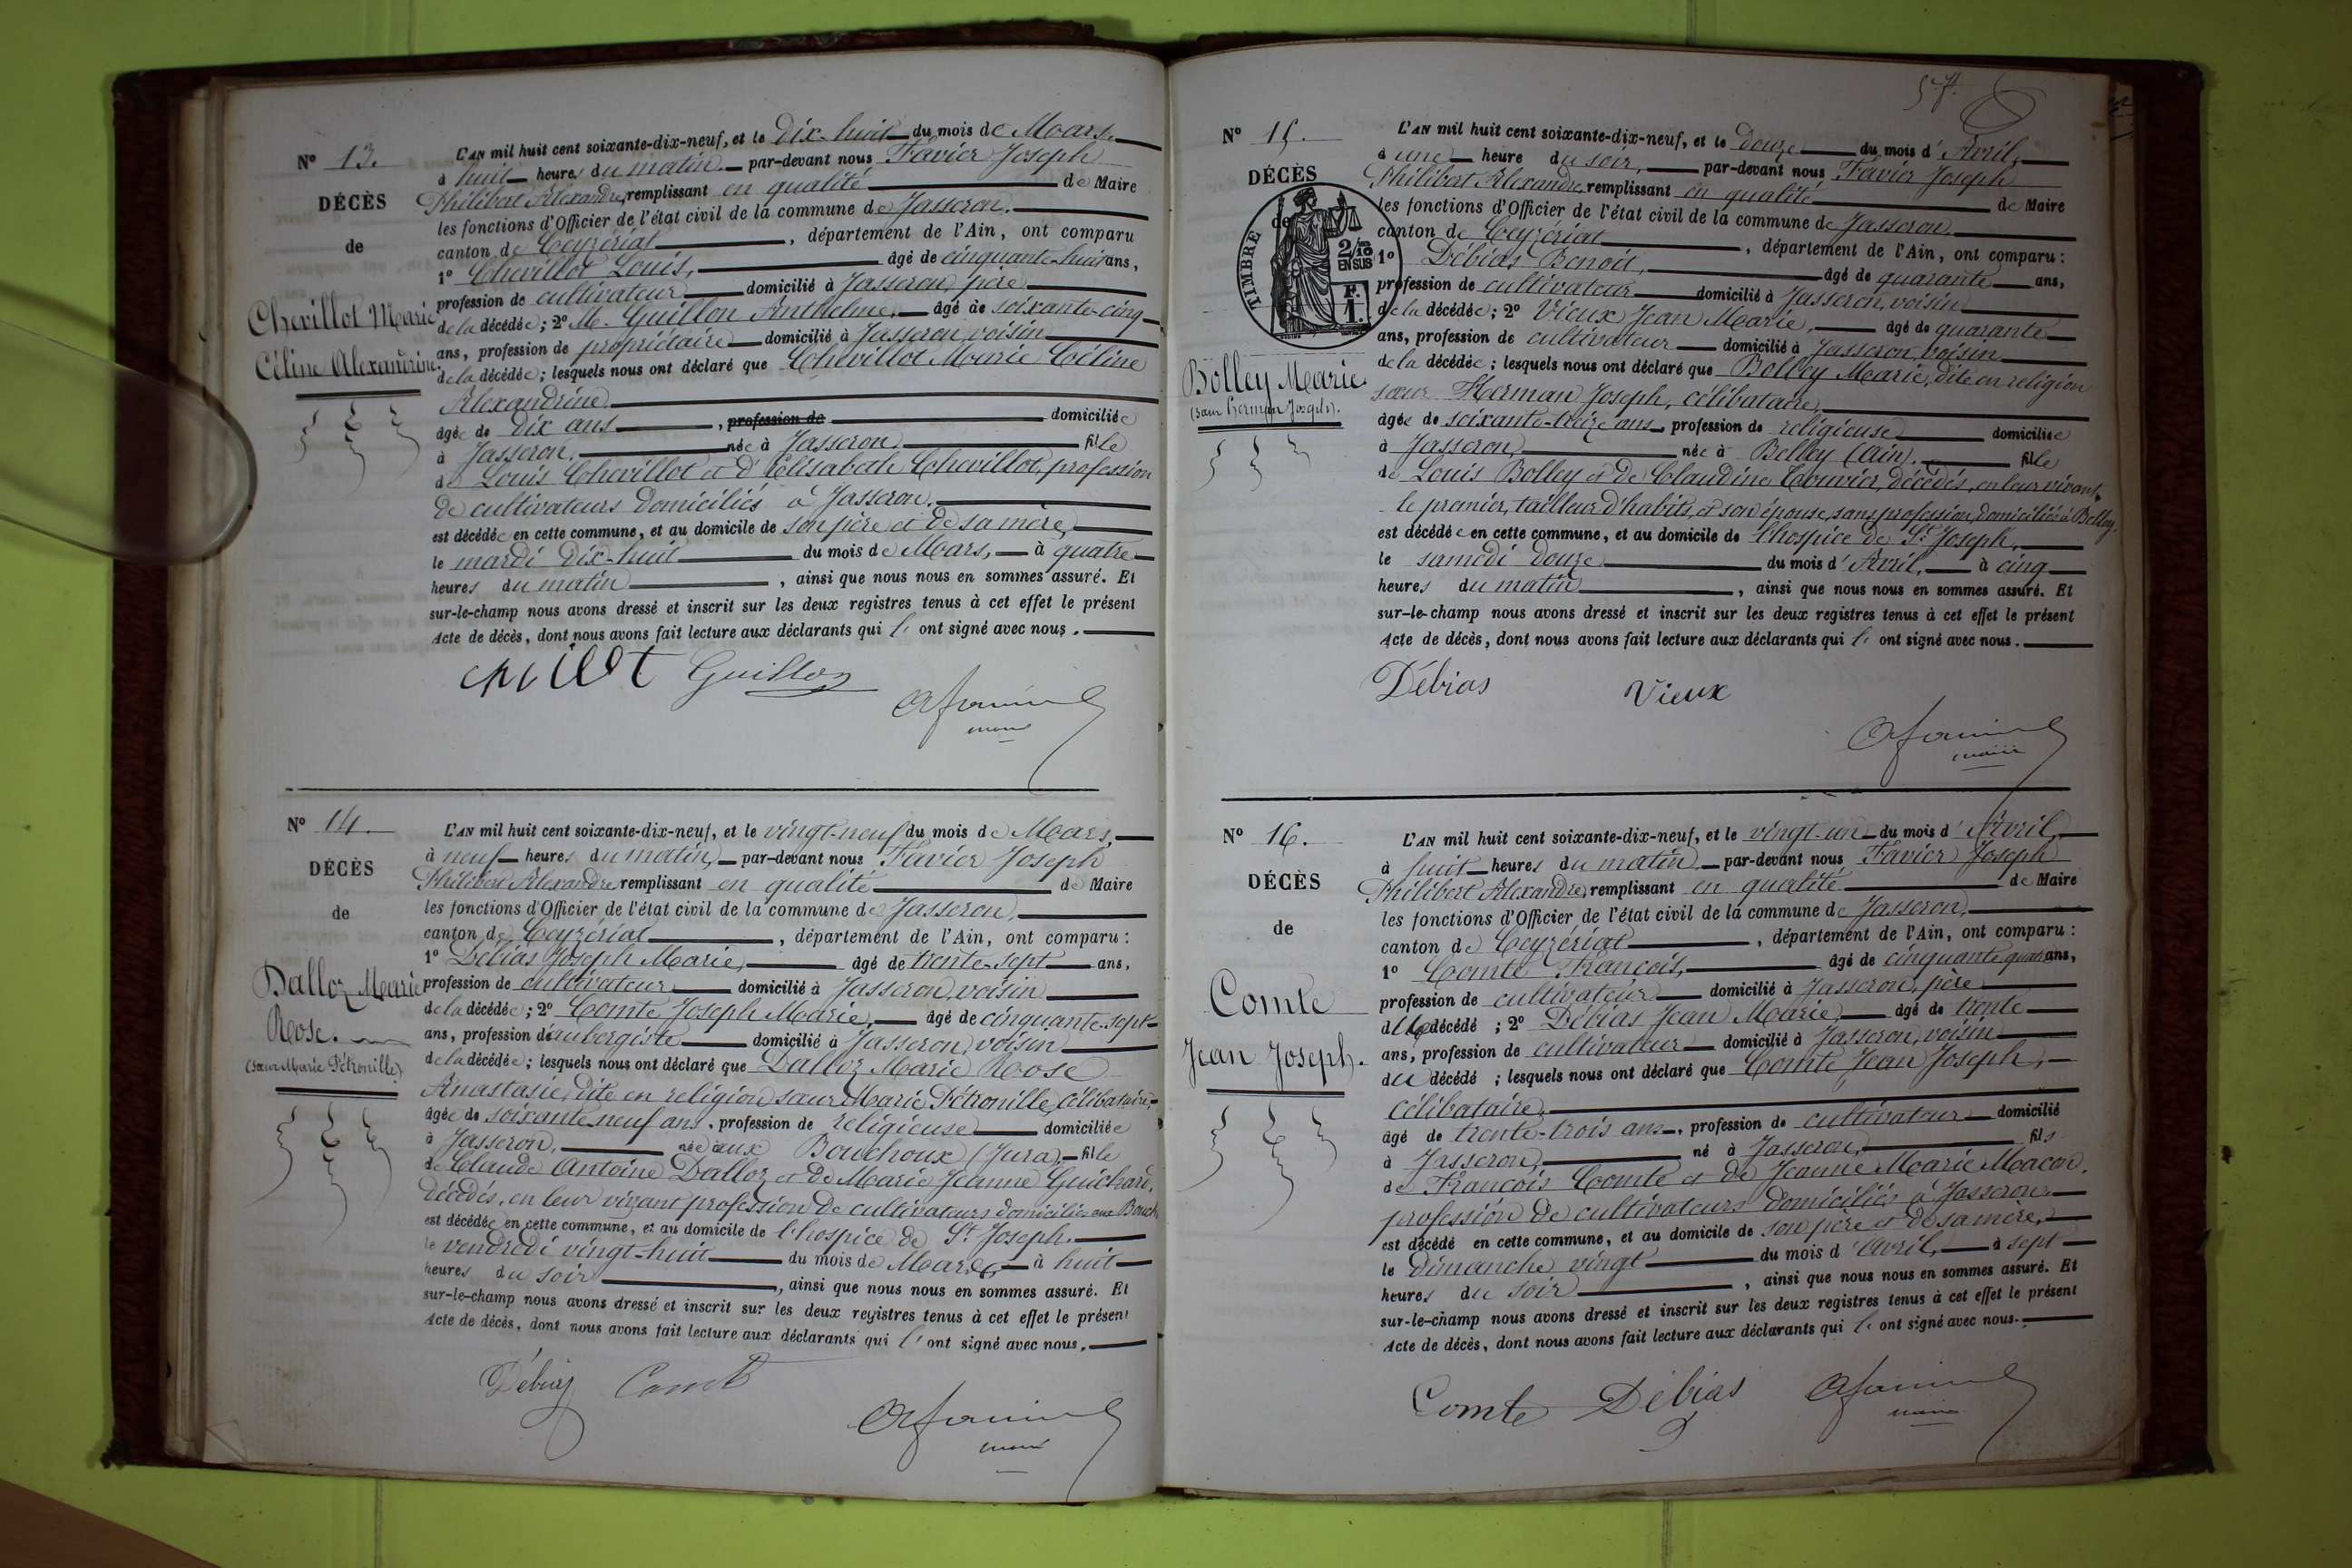 N° 13.
DÉCÈS
de
Chevillot Marie
Céline Alexandrine.
L'AN mil huit cent soixante-dix-neuf, et le dix-huit du mois de Mars,
à huit heures du matin, par-devant nous Favier Joseph
Philibert Alexandre, remplissant en qualité de Maire
les fonctions d'Officier de l'état civil de la commune de Jasseron,
canton de Ceyzériat, département de l'Ain, ont comparu
1° Chevillot Louis, âgé de cinquante-huit ans,
profession de cultivateur domicilié à Jasseron, père
de la décédée; 2° M. Guillon Anthelme, âgé de soixante-cinq
ans, profession de propriétaire domicilié à Jasseron, voisin
de la décédée; lesquels nous ont déclaré que Chevillot Marie Céline
Alexandrine
âgée de dix ans, profession de domiciliée
à Jasseron, née à Jasseron, fille
de Louis Chevillot et d'Elisabeth Chevillot, profession
de cultivateurs domiciliés à Jasseron,
est décédée en cette commune, et au domicile de son père et de sa mère,
le mardi dix-huit du mois de Mars, à quatre
heures du matin, ainsi que nous nous en sommes assuré. Et
sur-le-champ nous avons dressé et inscrit sur les deux registres tenus à cet effet le présent
Acte de décès, dont nous avons fait lecture aux déclarants qui l'ont signé avec nous.
Guillon
N° 14.
DÉCÈS
de
Dalloz Marie
Rose.
(sœur Marie Pétronille)
L'AN mil huit cent soixante-dix-neuf, et le vingt-neuf du mois de Mars,
à neuf heures du matin, par-devant nous Favier Joseph
Philibert Alexandre remplissant en qualité de Maire
les fonctions d'Officier de l'état civil de la commune de Jasseron,
canton de Ceyzériat, département de l'Ain, ont comparu :
1° Débias Joseph Marie, âgé de trente-sept ans,
profession de cultivateur domicilié à Jasseron, voisin
de la décédée; 2° Comte Joseph Marie, âgé de cinquante-sept
ans, profession d'aubergiste domicilié à Jasseron, voisin
de la décédée; lesquels nous ont déclaré que Dalloz Marie Rose
Anastasie, dite en religion sœur Marie Pétronille, célibataire,
âgée de soixante-neuf ans, profession de religieuse domiciliée
à Jasseron, née aux Bouchoux (Jura), fille
de Claude Antoine Dalloz et de Marie Jeanne Guichard,
décédés, en leur vivant profession de cultivateurs domiciliés aux Bouch
est décédée en cette commune, et au domicile de l'hospice de St Joseph.
le vendredi vingt-huit du mois de Mars, à huit
heures du soir, ainsi que nous nous en sommes assuré. Et
sur-le-champ nous avons dressé et inscrit sur les deux registres tenus à cet effet le présent
Acte de décès, dont nous avons fait lecture aux déclarants qui l'ont signé avec nous.
Débias Comte
N° 15.
DÉCÈS
de
TIMBRE
2/10
EN SUS
F.
1.
Bolley Marie
(sœur Herman Joseph).
L'AN mil huit cent soixante-dix-neuf, et le douze du mois d'Avril,
à une heure du soir, par-devant nous Favier Joseph
Philibert Alexandre, remplissant en qualité de Maire
les fonctions d'Officier de l'état civil de la commune de Jasseron
canton de Ceyzériat, département de l'Ain, ont comparu :
1° Débias Benoit, âgé de quarante ans,
profession de cultivateur domicilié à Jasseron, voisin
de la décédée; 2° Vieux Jean Marie, âgé de quarante
ans, profession de cultivateur domicilié à Jasseron, voisin
de la décédée; lesquels nous ont déclaré que Bolley Marie, dite en religion
sœur Herman Joseph, célibataire,
âgée de soixante-treize ans, profession de religieuse domiciliée
à Jasseron, née à Belley (Ain). fille
de Louis Bolley et de Claudine Couvier, décédés, en leur vivant
le premier, tailleur d'habits, et son épouse, sans profession, domiciliés à Belley,
est décédée en cette commune, et au domicile de l'hospice de St Joseph,
le samedi douze du mois d'Avril, à cinq
heures du matin, ainsi que nous nous en sommes assuré. Et
sur-le-champ nous avons dressé et inscrit sur les deux registres tenus à cet effet le présent
Acte de décès, dont nous avons fait lecture aux déclarants qui l'ont signé avec nous.
Débias Vieux
maire
N° 16.
DÉCÈS
de
Comte
Jean Joseph.
L'AN mil huit cent soixante-dix-neuf, et le vingt-un du mois d'Avril,
à huit heures du matin, par-devant nous Favier Joseph
Philibert Alexandre, remplissant en qualité de Maire
les fonctions d'Officier de l'état civil de la commune de Jasseron,
canton de Ceyzériat, département de l'Ain, ont comparu :
1° Comte François, âgé de cinquante quatre ans,
profession de cultivateur domicilié à Jasseron, père
du décédé ; 2° Débias Jean Marie, âgé de trente
ans, profession de cultivateur domicilié à Jasseron, voisin
du décédé ; lesquels nous ont déclaré que Comte Jean Joseph,
célibataire,
âgé de trente-trois ans, profession de cultivateur domicilié
à Jasseron, né à Jasseron, fils
de François Comte et de Jeanne Marie Macon,
profession de cultivateurs domiciliés à Jasseron,
est décédé en cette commune, et au domicile de son père et de sa mère,
le dimanche vingt du mois d'Avril, à sept
heures du soir, ainsi que nous nous en sommes assuré. Et
sur-le-champ nous avons dressé et inscrit sur les deux registres tenus à cet effet le présent
Acte de décès, dont nous avons fait lecture aux déclarants qui l'ont signé avec nous.
Comte Débias